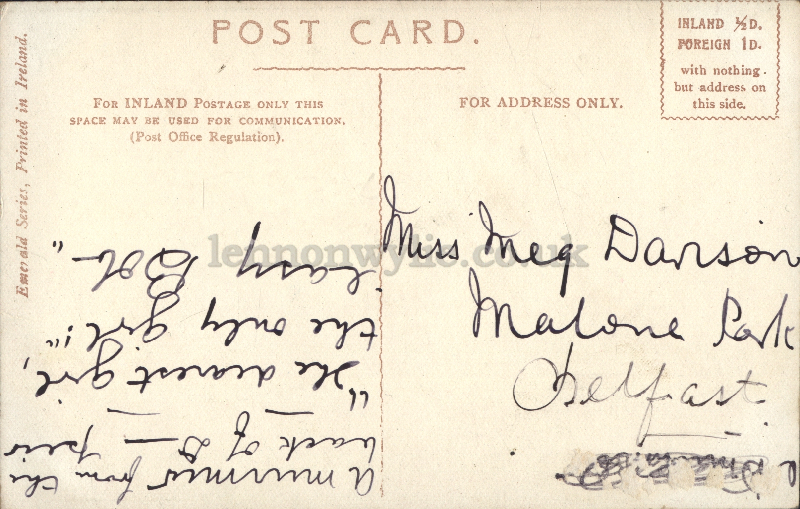 POST CARD.
INLAND ½D.
FOREIGN 1D.
with nothing
but address on
this side.
FOR INLAND POSTAGE ONLY THIS
SPACE MAY BE USED FOR COMMUNICATION.
(Post Office Regulation).
FOR ADDRESS ONLY.
Emerald Series, Printed in Ireland.
lennonwylie.co.uk
Miss Meg Davison
Malone Park
Belfast
A murmur from the
back of D — pier
"The dearest girl,
the only girl!"
"easy Bob"